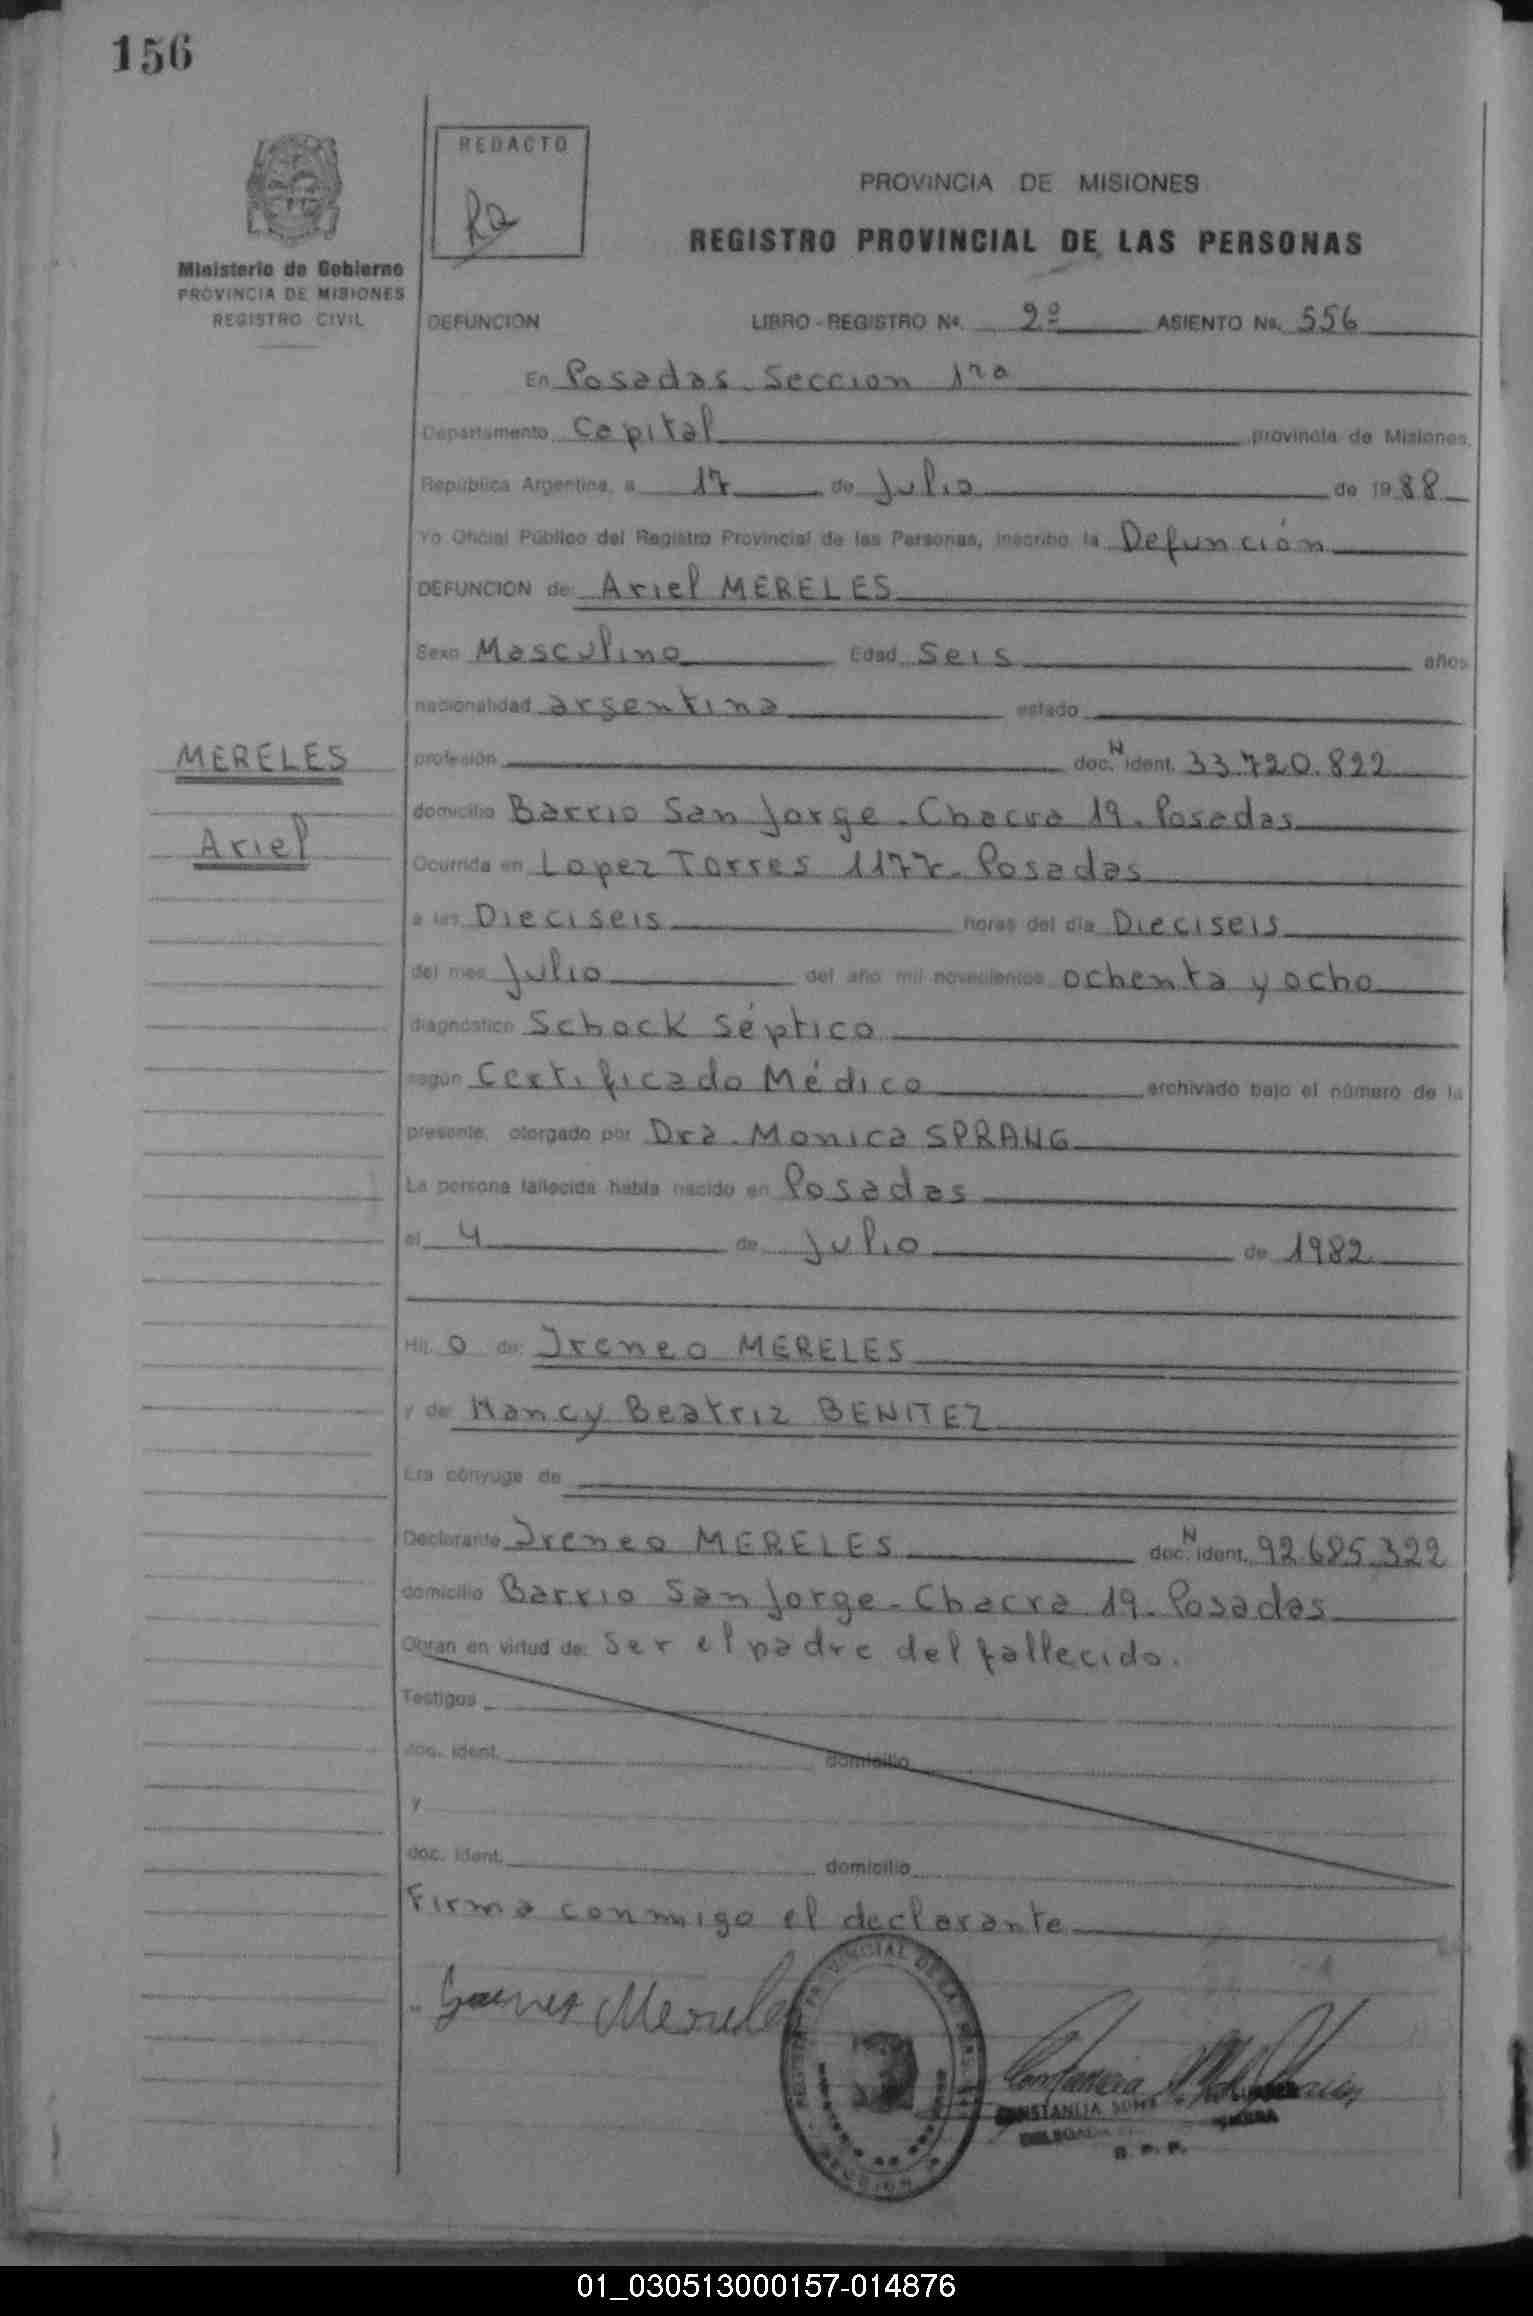 156
REDACTO
Ra
Ministerio de Gobierno
PROVINCIA DE MISIONES
REGISTRO CIVIL
PROVINCIA DE MISIONES
REGISTRO PROVINCIAL DE LAS PERSONAS
DEFUNCION LIBRO - REGISTRO Nº. 2º ASIENTO No. 556
En Posadas - Seccion 1ra
Departamento Capital provincia de Misiones,
República Argentina, a 17 de Julio de 1988
Yo Oficial Público del Registro Provincial de las Personas, inscribo la Defunción
DEFUNCION de: Ariel MERELES
Sexo Masculino Edad Seis años
nacionalidad argentina estado
MERELES
Ariel
profesión doc. N ident. 33.720.822
domicilio Barrio San Jorge - Chacra 19 - Posadas
Ocurrida en Lopez Torres 1177 - Posadas
a las Dieciseis horas del día Dieciseis
del mes Julio del año mil novecientos ochenta y ocho
diagnóstico Schock séptico
según Certificado Médico archivado bajo el número de la
presente, otorgado por Dra. Monica SPRANG
La persona fallecida había nacido en Posadas
el 4 de Julio de 1982
Hij o de: Ireneo MERELES
y de: Nancy Beatriz BENITEZ
Era cónyuge de
Declarante Ireneo MERELES doc. N ident. 92.685.322
domicilio Barrio San Jorge - Chacra 19 - Posadas
Obran en virtud de: Ser el padre del fallecido.
Testigos
doc. ident. domicilio
y
doc. ident. domicilio
Firma conmigo el declarante
Mereles
R. P. P.
01_030513000157-014876